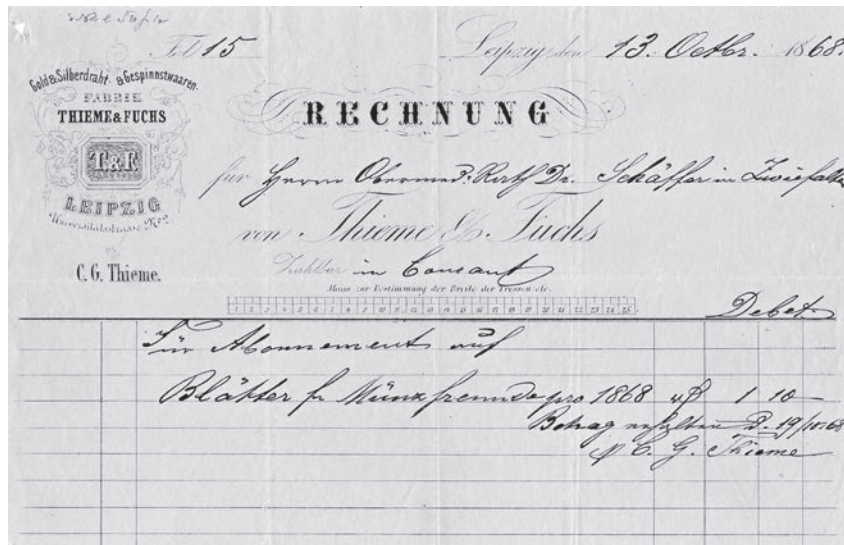 Fol 15
Leipzig, den 13. Octbr. 1868.
Gold & Silberdraht- & Gespinnstwaaren-
FABRIK
THIEME & FUCHS
T & F.
LEIPZIG
Universitätsstrasse No 2.
C. G. Thieme.
RECHNUNG
für Herrn Obermed: Rath Dr. Schäffer in Zwiefalten
von Thieme & Fuchs
Zahlbar in Contant
Maas zur Bestimmung der Breite der Tressen etc.
1 2 3 4 5 6 7 8 9 10 11 12 13 14 15 16 17 18 19 20 21 22 23 24 25
Debet
Für Abonnement auf
Blätter fr Münzfreunde pro 1868 1 10 —
Betrag erhalten d. 19/10.68
C. G. Thieme